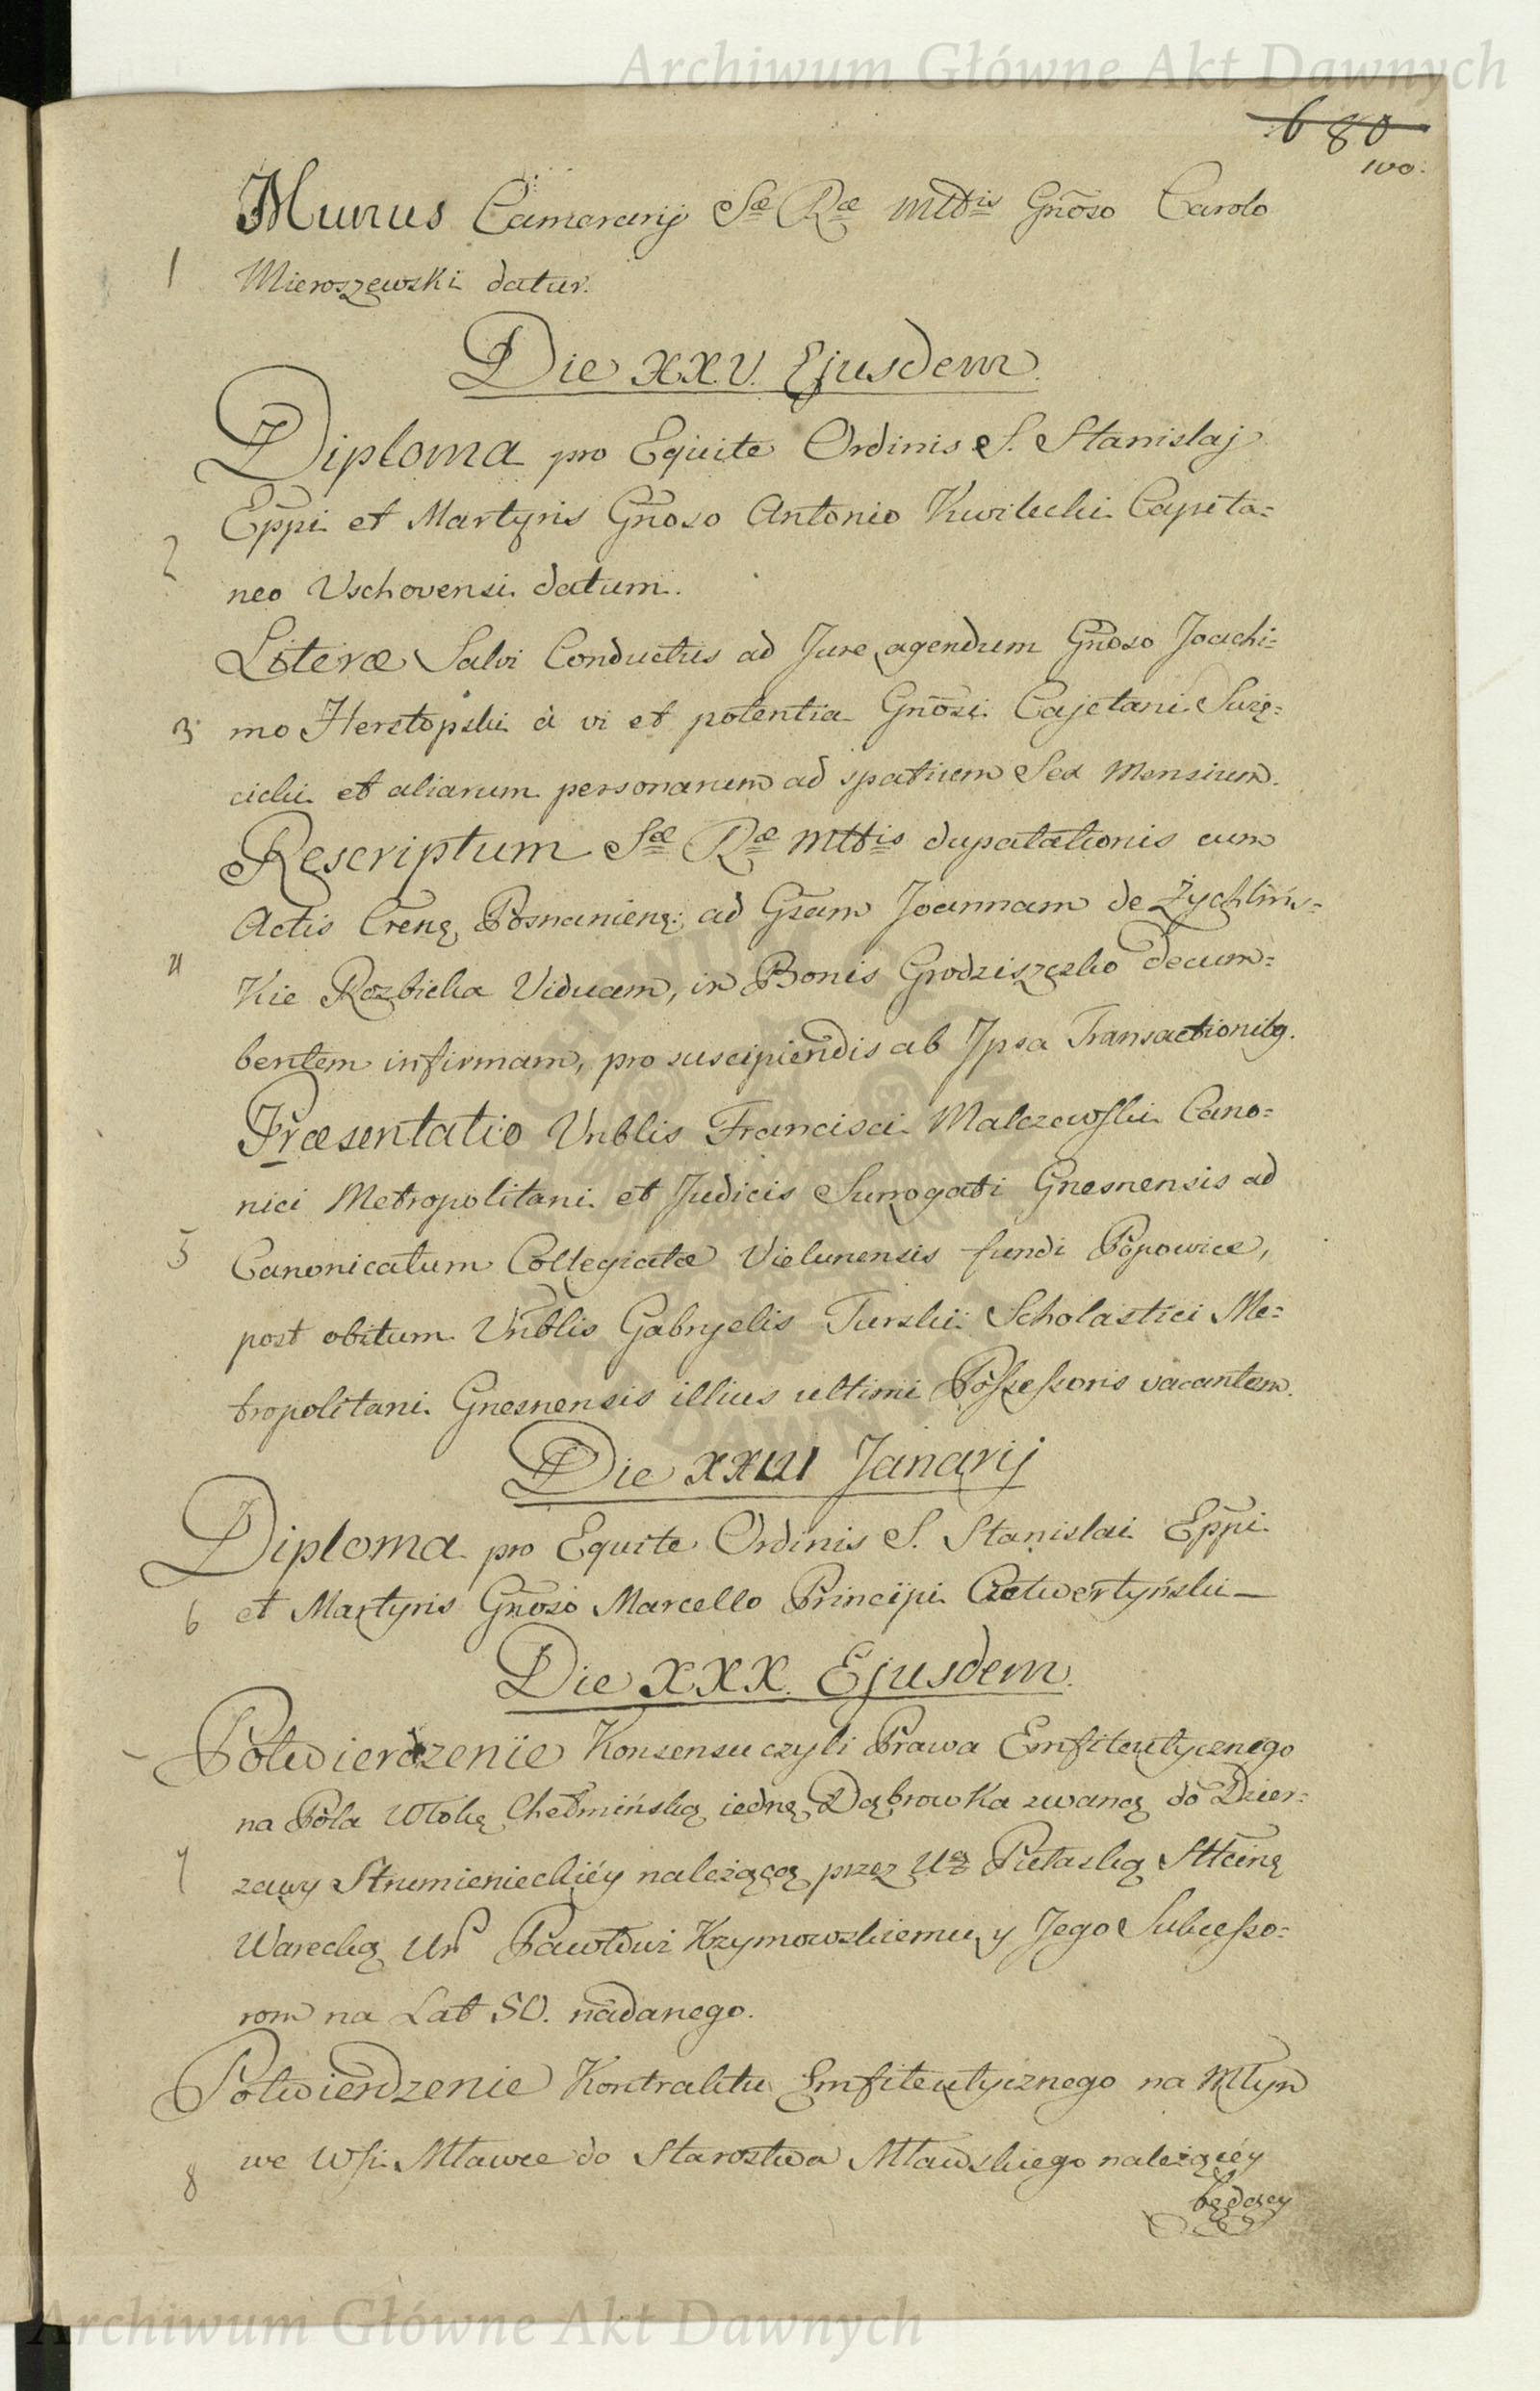 Archiwum Główne Akt Dawnych
680
100.
Munus Camerarij Sæ Ræ Mttis Gnoso Carolo
1
Mieroszewski datur.
Die XXV. Ejusdem.
Diploma pro Equite Ordinis S. Stanislaj
Eppi et Martyris Gnoso Antonio Kwilecki Capita=
2
neo Vschovensi datum.
Literæ Salvi Conductus ad Jure agendum Gnoso Joachi=
3 mo Hersztopski à vi et potentia Gnosi Cajetani Swię=
cicki et aliarum personarum ad spatium Sex Mensium.
Rescriptum Sæ Ræ Mttisduputationis cum
Actis Crens. Posnaniens: ad Gsam Joannam de Żychlińs=
4
kie Rozbicka Viduam, in Bonis Grodziszczko decum=
bentem infirmam, pro suscipiendis ab Ipsa Transactionibq.
Præsentatio Vnblis Francisci Malczewski Cano=
nici Metropolitani et Judicis Surrogati Gnesnensis ad
5 Canonicatum Collegiatæ Vielunensis fundi Popowice,
post obitum Vnblis Gabryelis Turski Scholastici Me=
tropolitani Gnesnensis illius ultimi Possessoris vacantem.
Die Janarij
Diploma pro Equite Ordinis S. Stanislai Eppi
6 et Martyris Gnoso Marcello Principi Czetwertyński —
Die XXX. Ejusdem.
Potwierdzenie Konsensu czyli Prawa Emfiteutycznego
na Pola Włókę Chełmińską iedną Dąbrowka zwaną do Dzier=
7 zawy Strumienieckiéy należącą przez Uą Stścinę
Warecką Ur Pawłowi Krzymowskiemu y Jego Sukcesso=
rom na Lat 50. nadanego.
Potwierdzenie Kontraktu Emfiteutycznego na Młyn
8 we Wsi Mławce do Starostwa Mławskiego należąćéy
będącey
Archiwum Główne Akt Dawnych